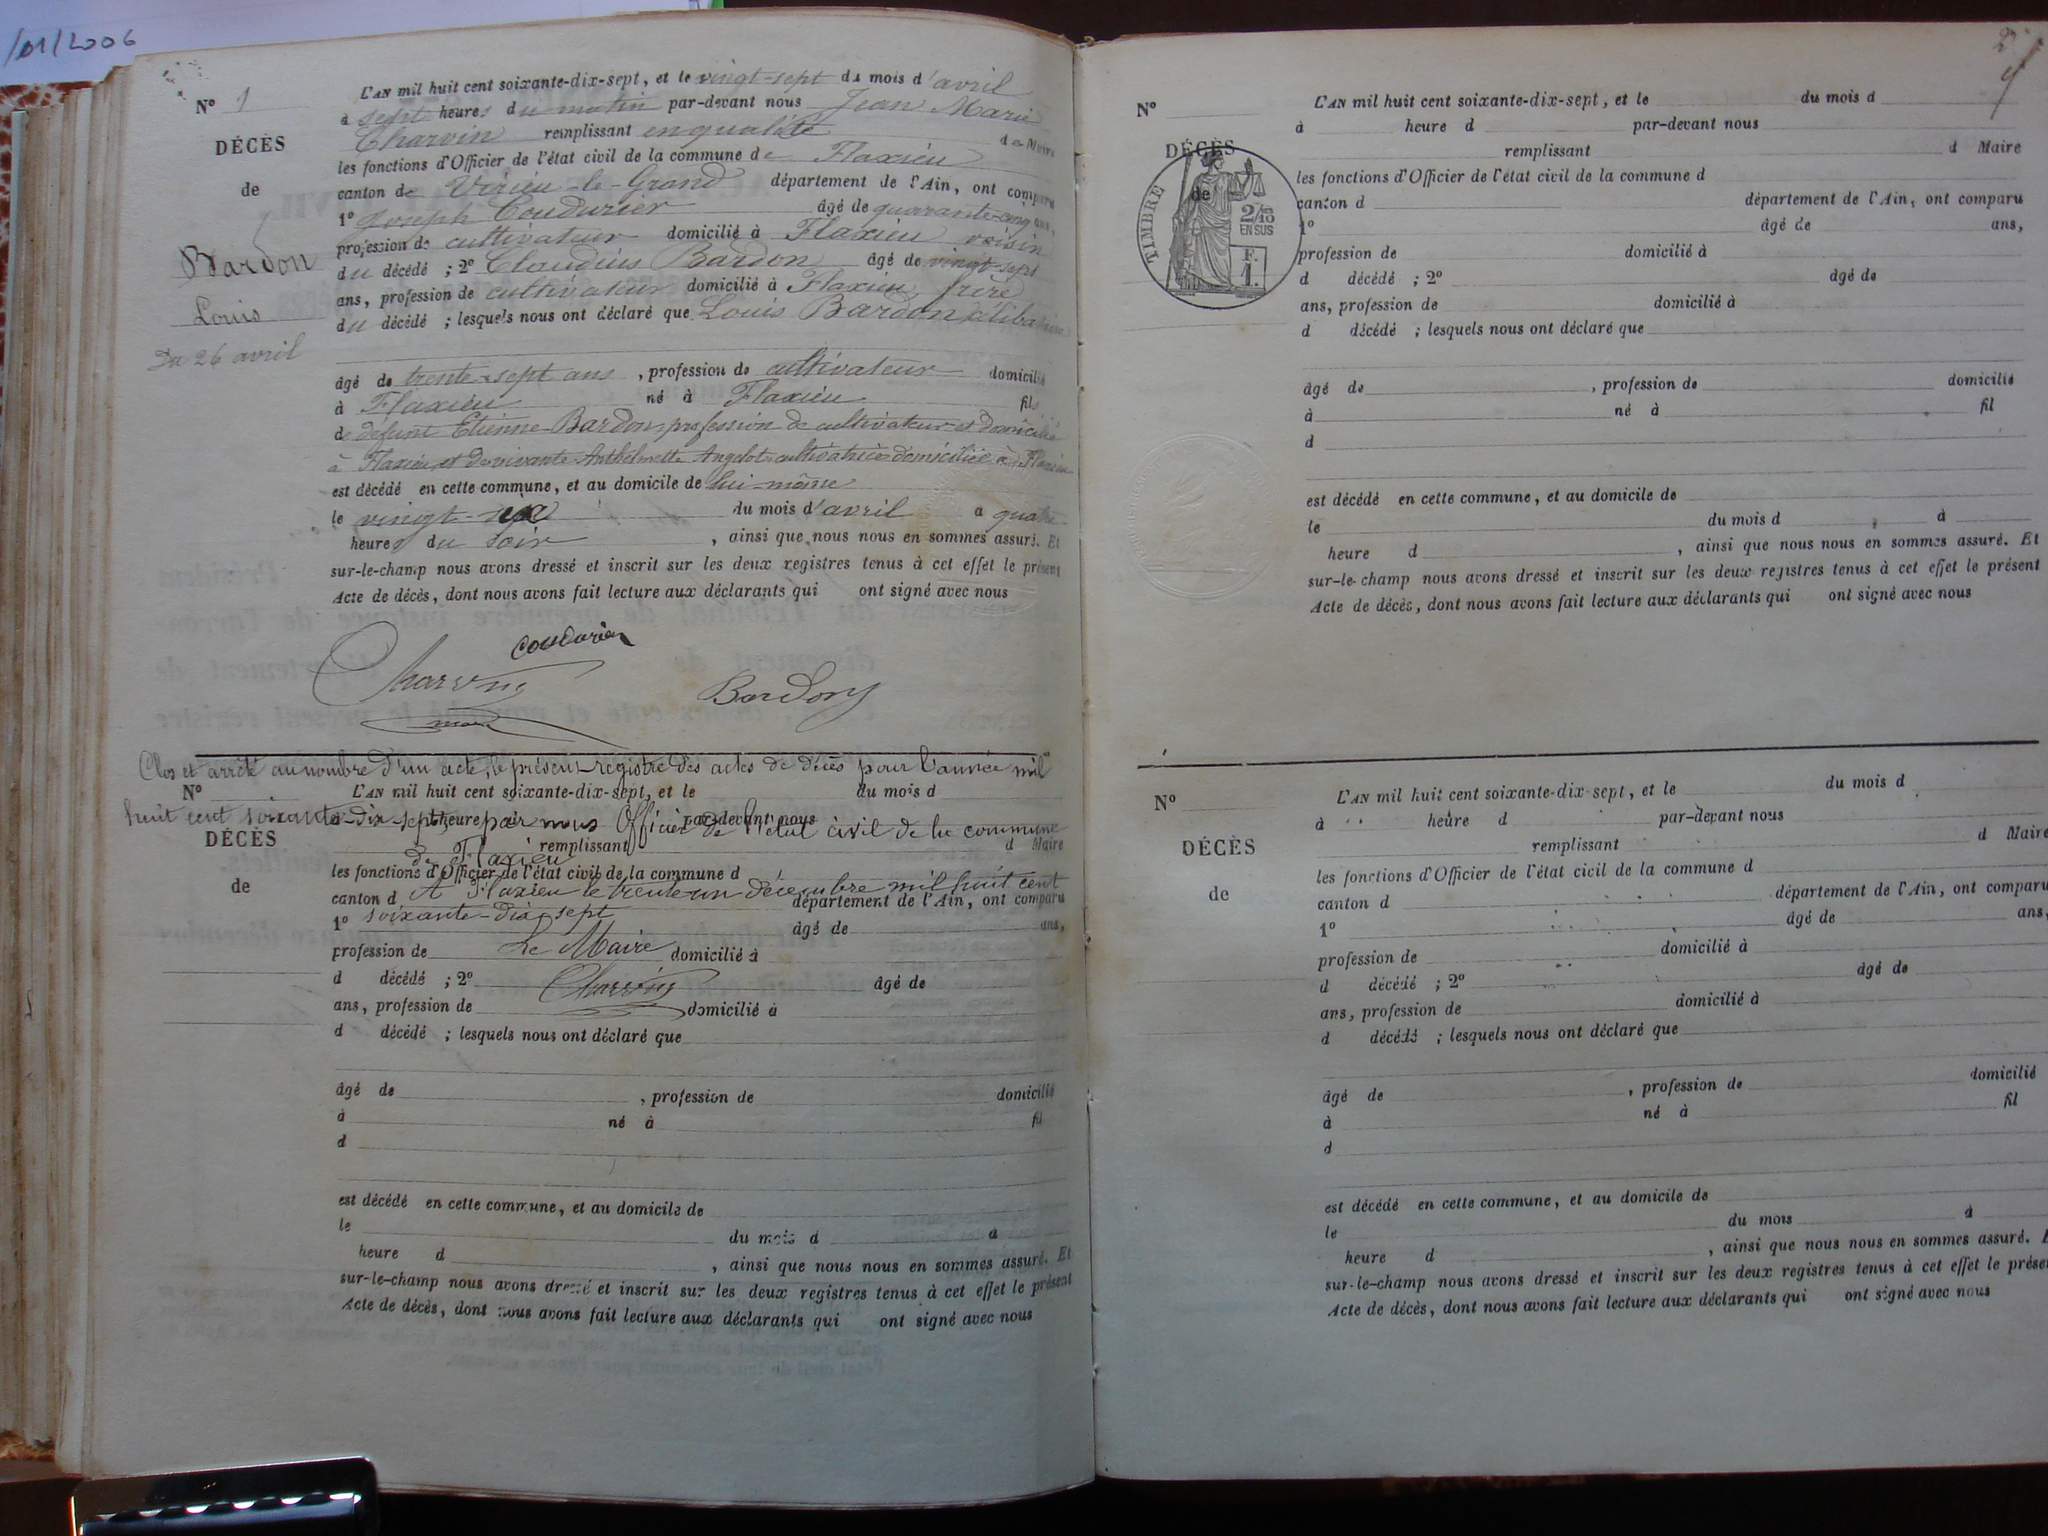 /01/2006
N° 1
DÉCÈS
de
Bardon
Louis
Du 26 avril
L'AN mil huit cent soixante-dix-sept, et le vingt-sept du mois d'avril
à sept heures du matin par-devant nous Jean Marie
Charvin remplissant en qualité de Maire
les fonctions d'Officier de l'état civil de la commune de Flaxieu
canton de Virieu-le-Grand département de l'Ain, ont comparu
1° Joseph Coudurier âgé de quarante-cinq ans,
profession de cultivateur domicilié à Flaxieu voisin
du décédé ; 2° Claudius Bardon âgé de vingt-sept
ans, profession de cultivateur domicilié à Flaxieu frère
du décédé ; lesquels nous ont déclaré que Louis Bardon célibataire
âgé de trente-sept ans , profession de cultivateur domicilié
à Flaxieu né à Flaxieu fils
de défunt Etienne Bardon, profession de cultivateur et domicilié
à Flaxieu et de vivante Anthelmette Angelot cultivatrice domiciliée à Flaxieu
est décédé en cette commune, et au domicile de lui-même
le vingt-six du mois d'avril à quatre
heures du soir , ainsi que nous nous en sommes assuré. Et
sur-le-champ nous avons dressé et inscrit sur les deux registres tenus à cet effet le présent
Acte de décès, dont nous avons fait lecture aux déclarants qui ont signé avec nous
Coudurier
Charvin
Bardon
maire
Clos et arrêté au nombre d'un acte, le présent registre des actes de décès pour l'année mil
N° L'AN mil huit cent soixante-dix-sept, et le du mois d
huit cent soixante-dix-sept, par nous Officier de l'état civil de la commune
à heure d par-devant nous
DÉCÈS
remplissant d Maire
de Flaxieu
les fonctions d'Officier de l'état civil de la commune d
de
A Flaxieu le trente-un décembre mil huit cent
canton d département de l'Ain, ont comparu
soixante-dix-sept
1° âgé de ans,
Le Maire
profession de domicilié à
d décédé ; 2° âgé de
Charvin
ans, profession de domicilié à
d décédé ; lesquels nous ont déclaré que
âgé de , profession de domicilié
à né à fil
d
est décédé en cette commune, et au domicile de
le du mois d à
heure d , ainsi que nous nous en sommes assuré. Et
sur-le-champ nous avons dressé et inscrit sur les deux registres tenus à cet effet le présent
Acte de décès, dont nous avons fait lecture aux déclarants qui ont signé avec nous
2
N°
DÉCÈS
de
TIMBRE
2/10
EN SUS
F.
1.
L'AN mil huit cent soixante-dix-sept, et le du mois d
à heure d par-devant nous
remplissant d Maire
les fonctions d'Officier de l'état civil de la commune d
canton d département de l'Ain, ont comparu
1° âgé de ans,
profession de domicilié à
d décédé ; 2° âgé de
ans, profession de domicilié à
d décédé ; lesquels nous ont déclaré que
âgé de , profession de domicilié
à né à fil
d
est décédé en cette commune, et au domicile de
le du mois d à
heure d , ainsi que nous nous en sommes assuré. Et
sur-le-champ nous avons dressé et inscrit sur les deux registres tenus à cet effet le présent
Acte de décès, dont nous avons fait lecture aux déclarants qui ont signé avec nous
N°
DÉCÈS
de
L'AN mil huit cent soixante-dix-sept, et le du mois d
à heure d par-devant nous
remplissant d Maire
les fonctions d'Officier de l'état civil de la commune d
canton d département de l'Ain, ont comparu
1° âgé de ans,
profession de domicilié à
d décédé ; 2° âgé de
ans, profession de domicilié à
d décédé ; lesquels nous ont déclaré que
âgé de , profession de domicilié
à né à fil
d
est décédé en cette commune, et au domicile de
le du mois à
heure d , ainsi que nous nous en sommes assuré. E
sur-le-champ nous avons dressé et inscrit sur les deux registres tenus à cet effet le présen
Acte de décès, dont nous avons fait lecture aux déclarants qui ont signé avec nous